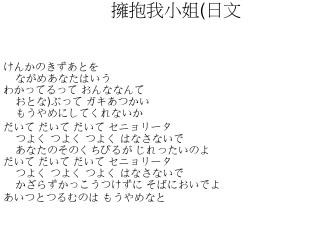 擁抱我小姐(日文
けんかのきずあとを
ながめあなたはいう
わかってるって おんななんて
おとな)ぶって ガキあつかい
もうやめにしてくれないか
だいて だいて だいて セニョリータ
つよく つよく つよく はなさないで
あなたのそのくちびるが じれったいのよ
だいて だいて だいて セニョリータ
つよく つよく つよく はなさないで
かざらずかっこうつけずに そばにおいでよ
あいつとつるむのは もうやめなと